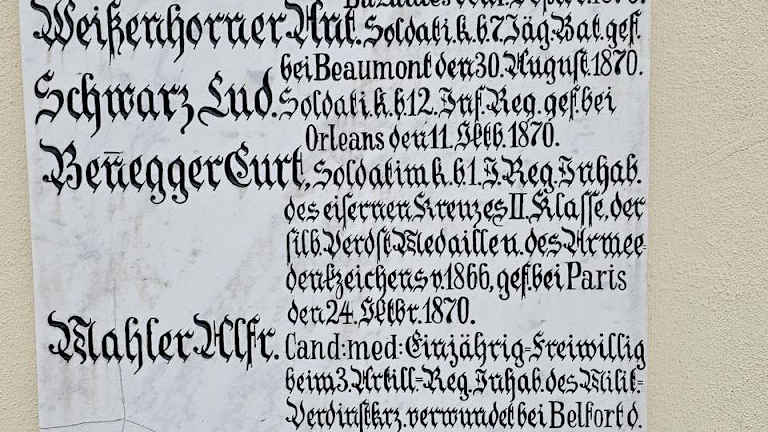 Weißenhorner Ant. Soldat i. k. b. 7. Jäg. Bat. gef.
bei Beaumont den 30. August. 1870.
Schwarz Lud. Soldat i. k. b. 12. Inf. Reg. gef. bei
Orleans den 11. Oktb. 1870.
Ben̄egger Curt, Soldat im k. b. 1. J. Reg. Inhab.
des eisernen Kreuzes II. Klasse, der
silb. Verdst. Medaille u. des Armee-
denkzeichens v. 1866, gef. bei Paris
den 24. Oktbr. 1870.
Mahler Alfr. Cand: med: Einjährig=Freiwillig
beim 3. Artill.=Reg. Inhab. des Milit=
Verdinstkrz. verwundet bei Belfort d.